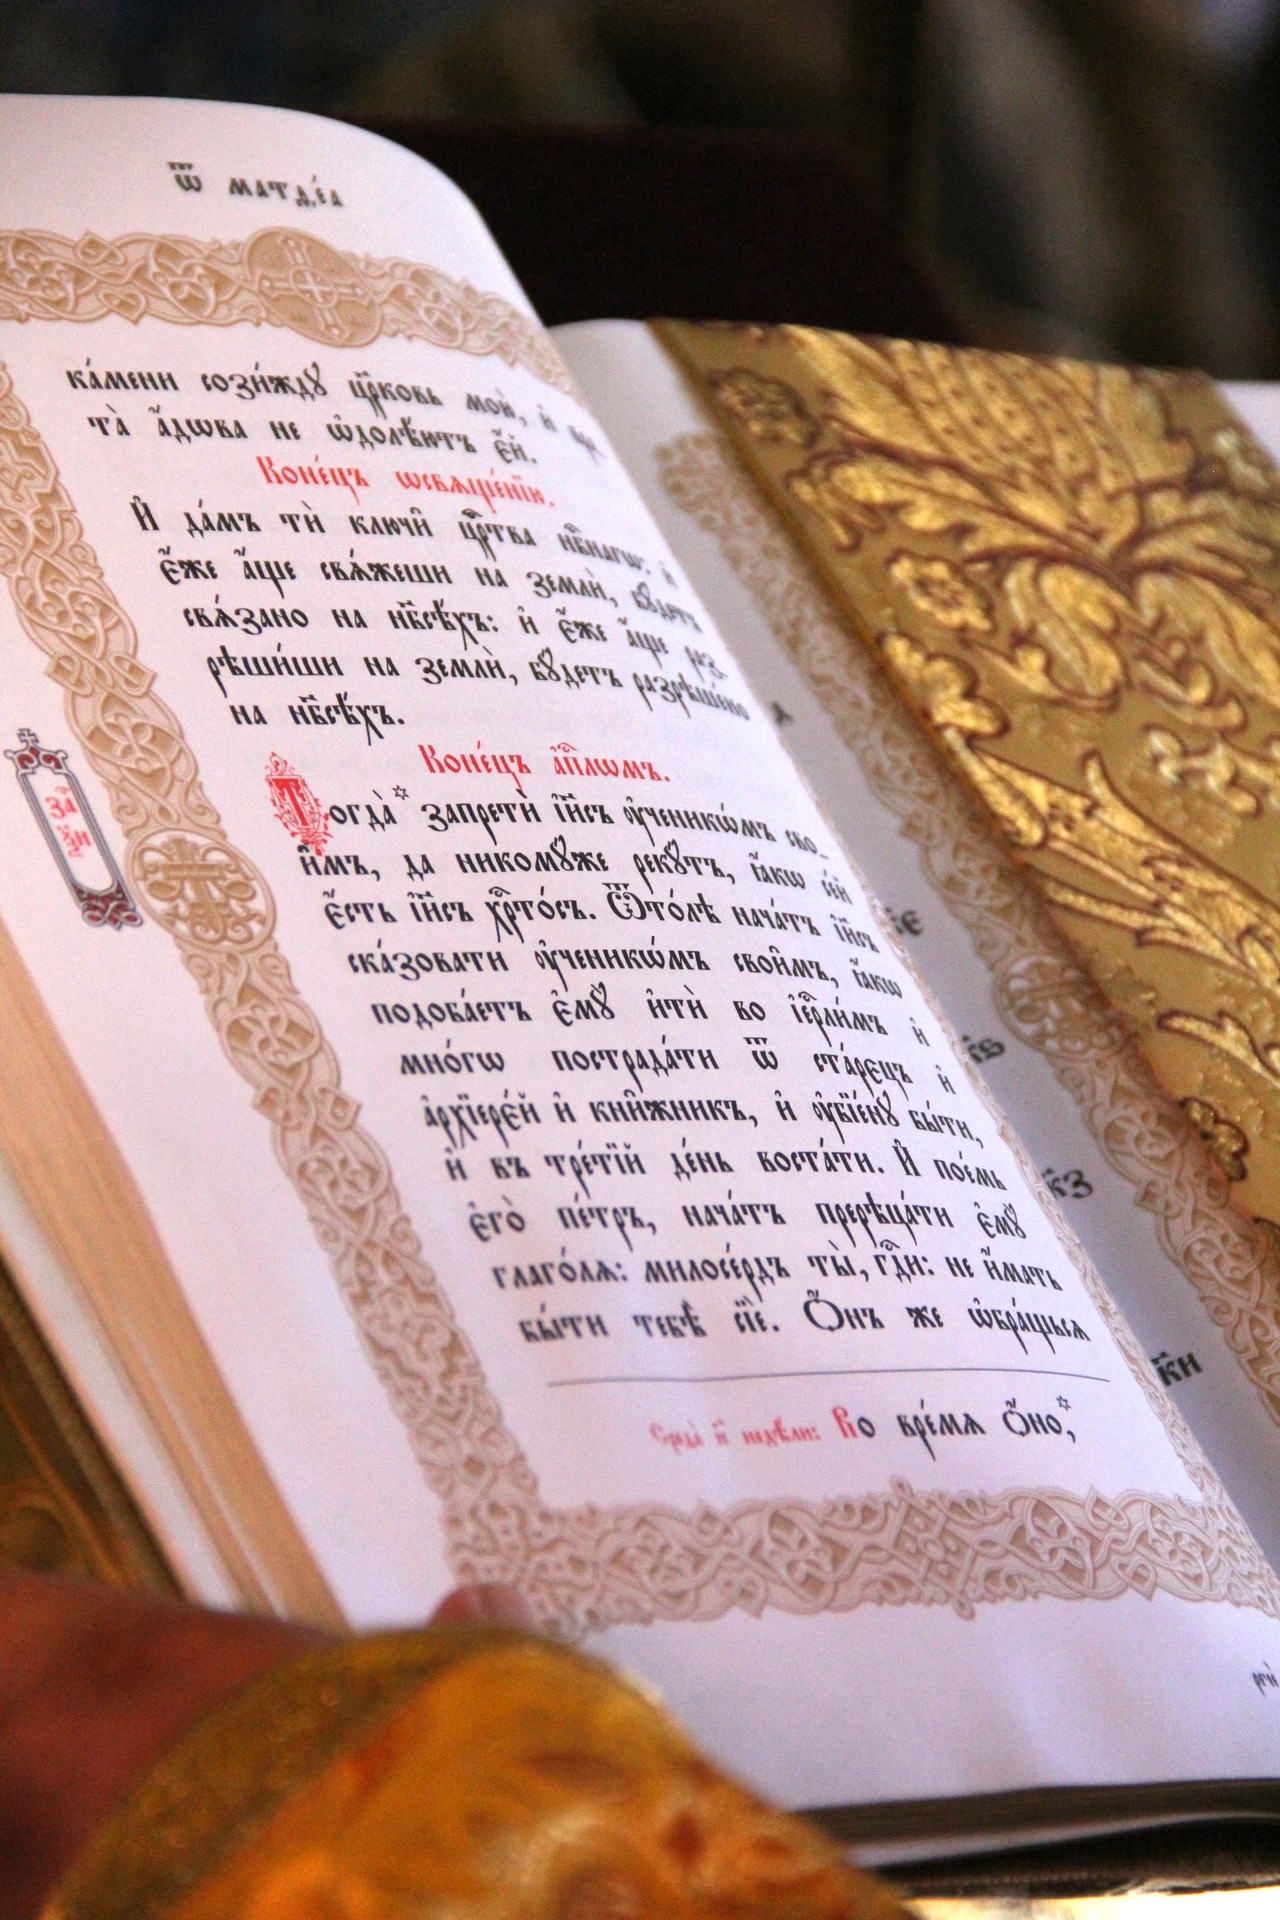 ѿ матѳе́а
ка́мени сози́ждꙋ цр҃ковь мою̀, и҆ вра
та̀ а҆́дѡва не ѡ҆долѣ́ютъ є҆́й.
Коне́цъ ѡсвѧще́нїю.
И҆ да́мъ тѝ ключи̑ црⷭ҇тва нбⷭ҇нагѡ: и҆
є҆́же а҆́ще свѧ́жеши на землѝ, бꙋ́детъ
свѧ́зано на нб҃сѣ́хъ: и҆ є҆́же а҆́ще раз
рѣши́ши на землѝ, бꙋ́детъ разрѣше́но
на нб҃сѣ́хъ.
Коне́цъ а҆пⷭ҇лѡмъ.
Тогда̀* запретѝ і҆и҃съ ᲂу҆ченикѡ́мъ сво_
и̑мъ, да никомꙋ́же рекꙋ́тъ, ꙗ҆́кѡ се́й
є҆́сть і҆и҃съ хрⷭ҇то́съ. Ѿто́лѣ нача́тъ і҆и҃съ
ска́зовати ᲂу҆ченикѡ́мъ свои̑мъ, ꙗ҆́кѡ
подоба́етъ є҆мꙋ̀ и҆тѝ во і҆ерⷭ҇ли́мъ и҆
мно́гѡ пострада́ти ѿ ста́рєцъ и҆
а҆рхїере́й и҆ кни̑жникъ, и҆ ᲂу҆бїе́нꙋ бы́ти,
и҆ въ тре́тїй де́нь воста́ти. И҆ пое́мь
є҆го̀ пе́тръ, нача́тъ прерѣца́ти є҆мꙋ̀
глаго́лѧ: милосе́рдъ ты̀, гдⷭ҇и: не и҆́мать
бы́ти тебѣ̀ сїѐ. Ѻ҆́нъ же ѡ҆бра́щьсѧ
Среда̀ и҃ недѣ́ли: Во вре́мѧ ѻ҆́но,*
за҃